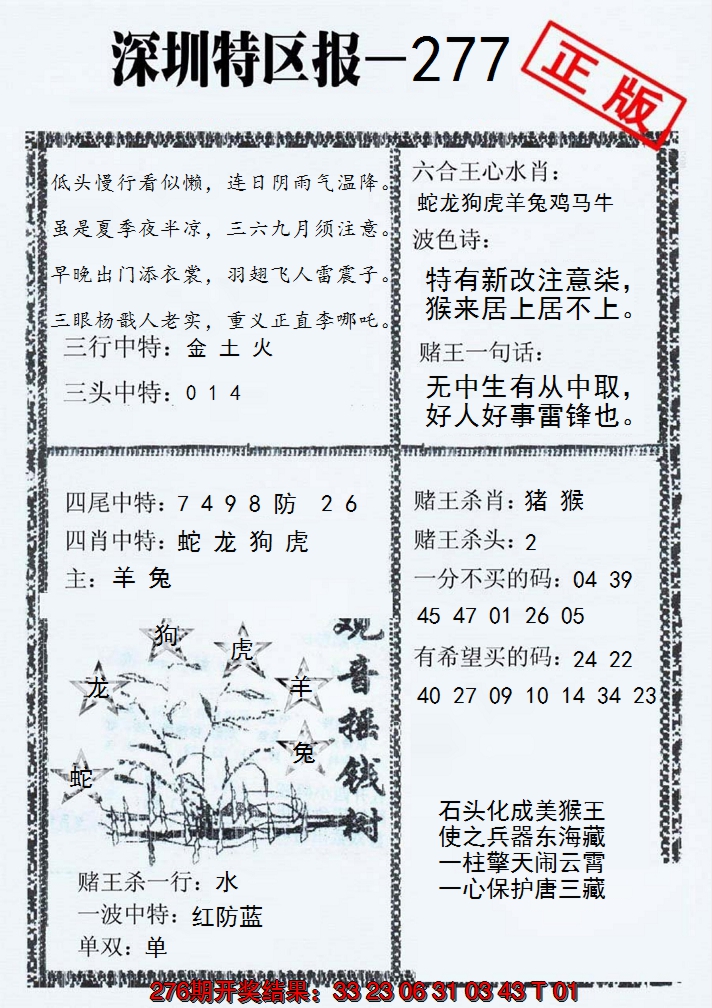 深圳特区报—277
正版
低头慢行看似懒，连日阴雨气温降。
虽是夏季夜半凉，三六九月须注意。
早晚出门添衣裳，羽翅飞人雷震子。
三眼杨戬人老实，重义正直李哪吒。
三行中特：金 土 火
三头中特：0 1 4
六合王心水肖：
蛇龙狗虎羊兔鸡马牛
波色诗：
特有新改注意柒，
猴来居上居不上。
赌王一句话：
无中生有从中取，
好人好事雷锋也。
四尾中特：7 4 9 8 防 2 6
四肖中特：蛇 龙 狗 虎
主：羊 兔
狗
虎
龙
羊
兔
蛇
观音摇钱树
赌王杀一行：水
一波中特：红防蓝
单双：单
赌王杀肖：猪 猴
赌王杀头：2
一分不买的码：04 39
45 47 01 26 05
有希望买的码：24 22
40 27 09 10 14 34 23
石头化成美猴王
使之兵器东海藏
一柱擎天闹云霄
一心保护唐三藏
276期开奖结果：33 23 06 31 03 43 T 01